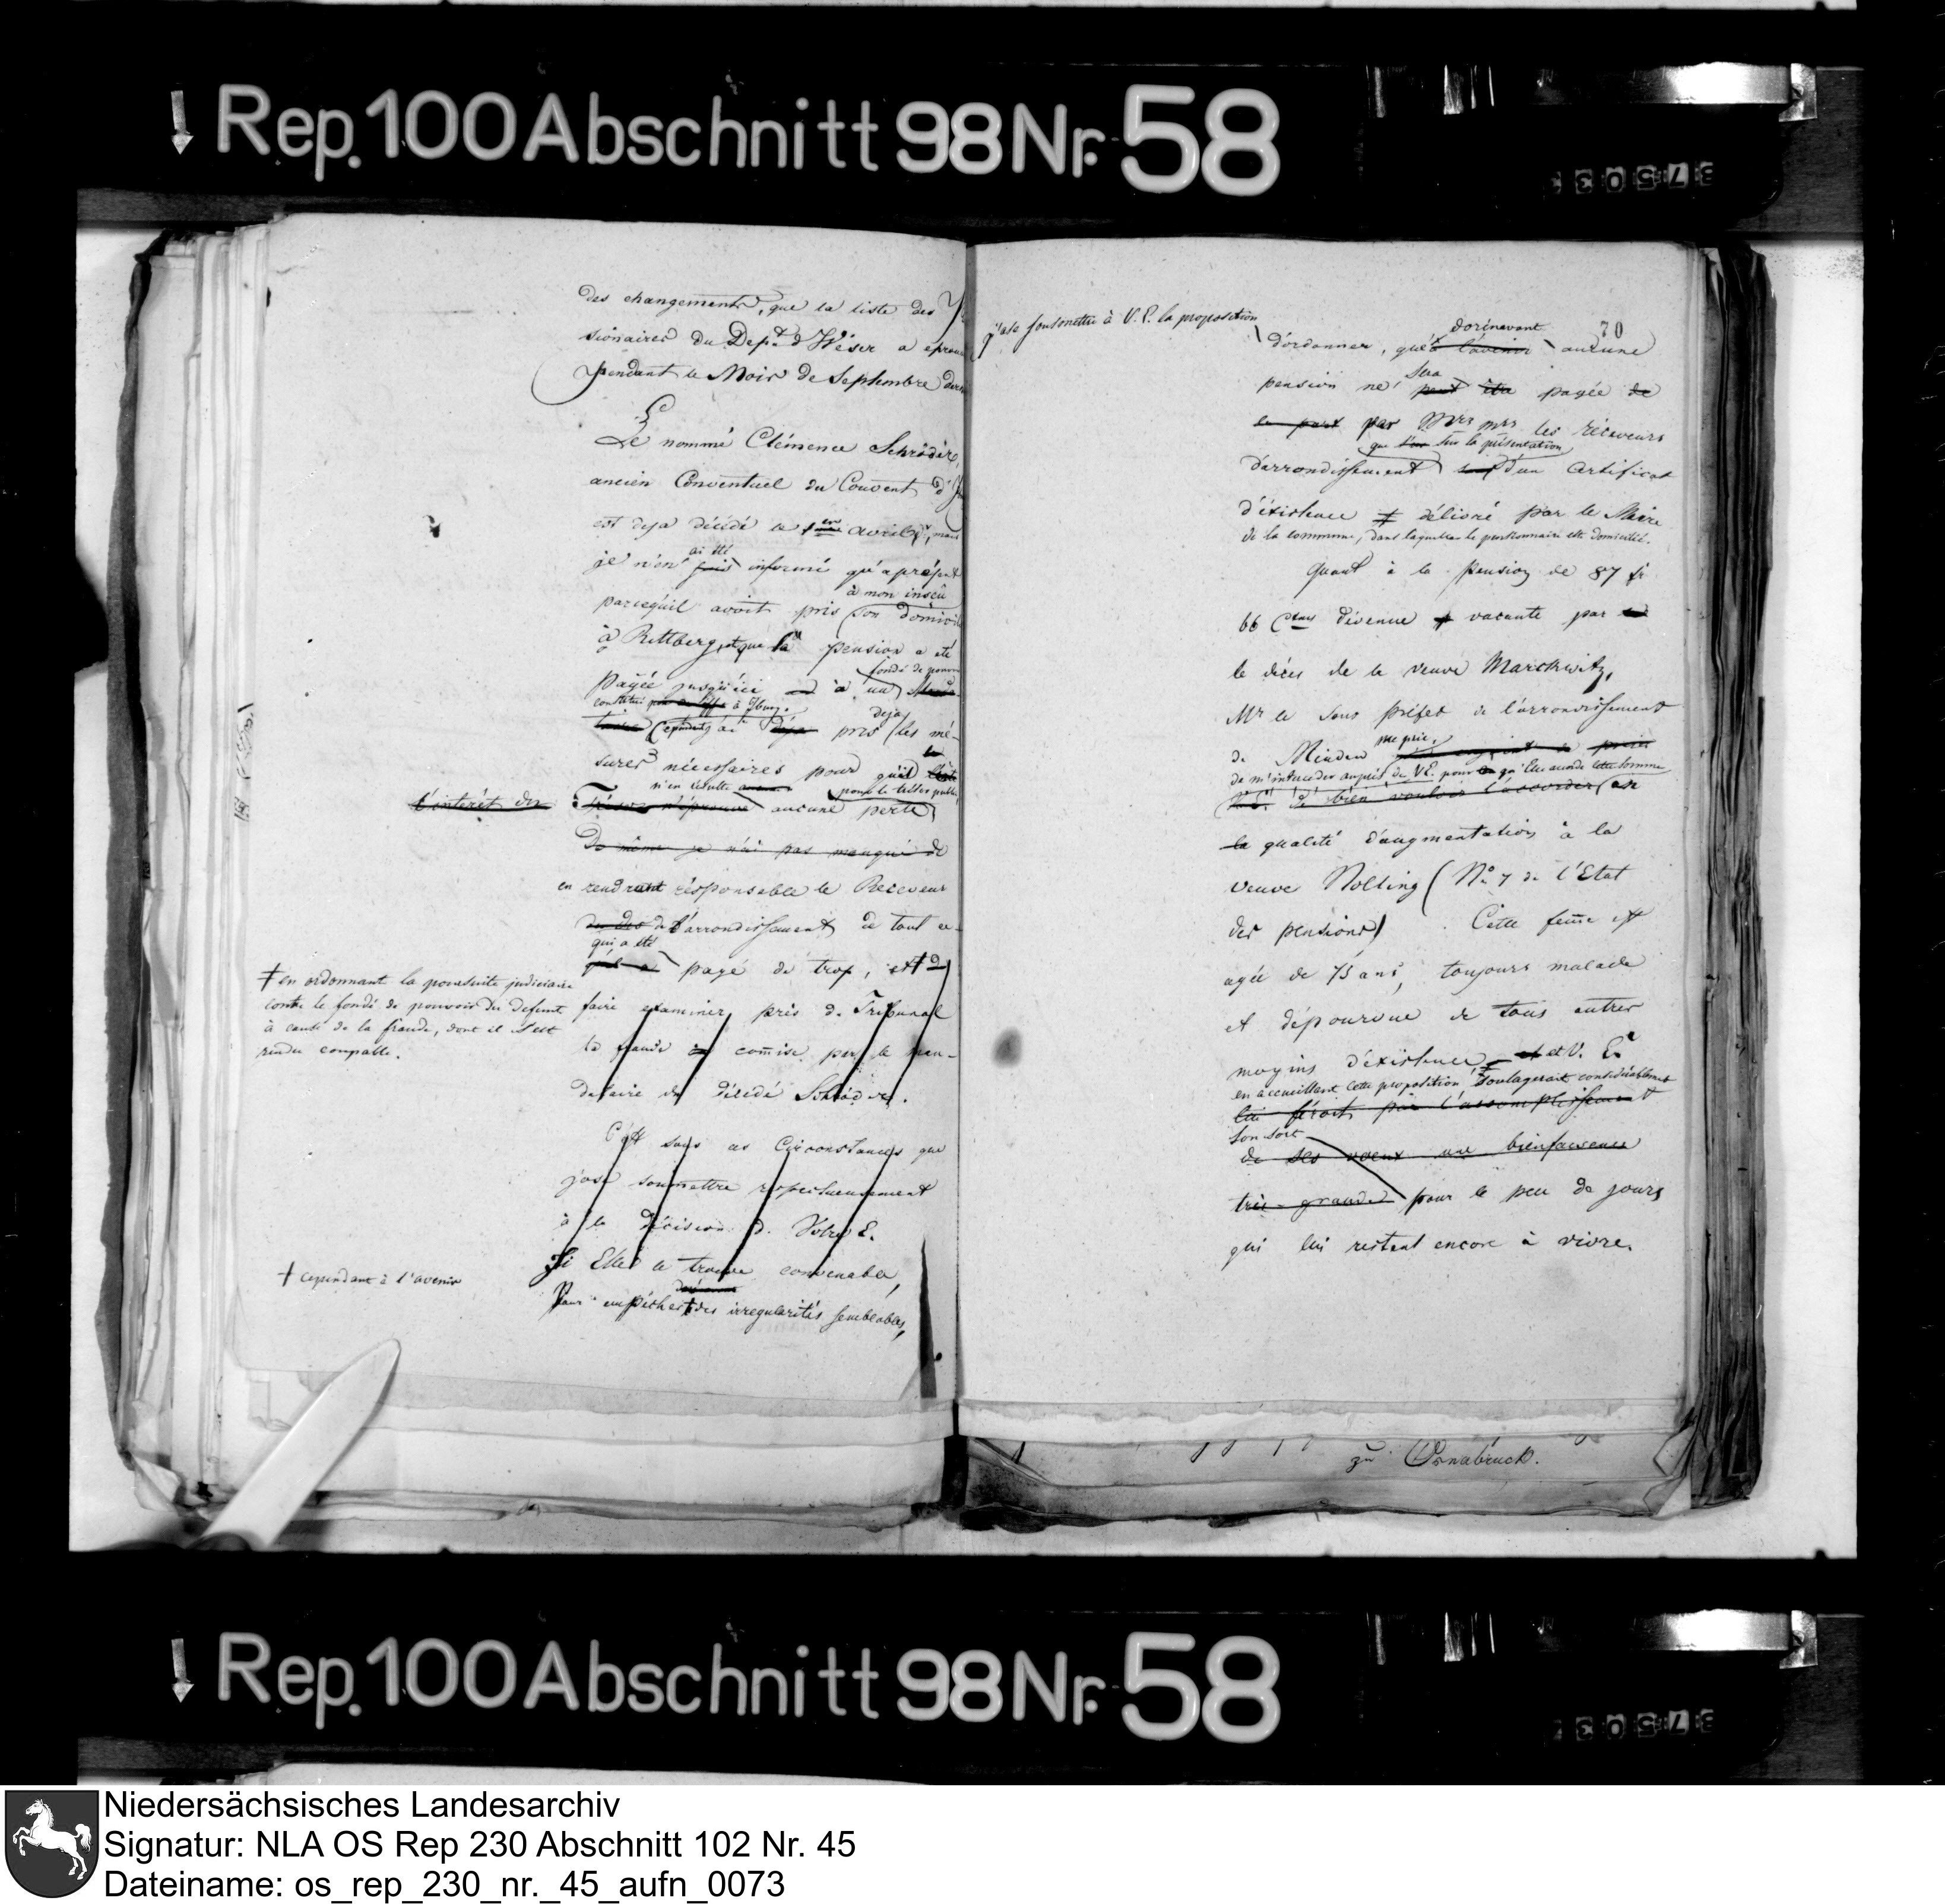 Rep. 100 Abschnitt 98 Nr. 58
37503
des changements, que la liste des
sionaires du Dept. d Wéser a eprou
pendant le Mois de Septembre
Le nommé Clémence Schröder,
ancien Conventuel du Couvent d'
est deja décédé le 1er avril, mais
ai été
je n'en fus informé qu'apresent
à mon insçu
parcequ'il avoit pris son domicil
à Rittberg, et que sa pension a été
fondé de pouvoir
payée jusqu'ici à un
constitué à Iburg.
deja
Cependant j'ai deja pris les mé-
sures nécessaires pour qu'il
n'en résulte pour le trésor public
l'intérêt du
Trésor n'éprouve aucune perte
De même je n'ai pas manqué de
en rendrant résponsable le Receveur
de l'arrondissement de tout ce
qui a été
qu'il a payé de trop, et de
† en ordonnant la poursuite judiciaire
contre le fondé de pouvoir du defunt
à cause de la fraude, dont il s'est
rendu coupable.
faire examiner près de Tribunal
la fraude comise par le man-
dataire du décédé Schröder.
C'est sous ces Circonstances que
j'ose soumettre respectueusement
à la décision d. Votre E.
Si Elle le trouve convenable,
† cependant à l'avenir
Pour empêcher des irregularités semblables,
j'ose soumettre à V. E. la proposition
70
dorénavant
d'ordonner, qu'à l'avenir aucune
sera
pension ne peut être payée de
la part par Mrs les réceveurs
que sur la présentation
d'arrondissement d'un Certificat
d'éxistence délivré par le Maire
de la commune, dans laquelle le pensionnaire est domicilié.
Quant à la pension de 87 fr
66 Ctmes dévenue vacante par
le décès de la veuve Marckwitz,
Mr le Sous préfet de l'arrondissement
me prie,
de Minden
de m'interceder auprès de V.E. pour qu'Elle accorde cette somme
de bien vouloir l'accorder en
la qualité d'augmentation à la
veuve Nolting (No 7 de l'Etat
des pensions). Cette femme est
agée de 73 ans, toujours malade
et dépourvue de tous autres
moyins d'éxistence et V. E.
en accueillant cette proposition soulagerait considérablement
lui feroit par l'accomplissement
son sort
de ses voeux une bienfaisance
très grande pour le peu de jours
qui lui restent encore à vivre.
zu Osnabrück.
Rep. 100 Abschnitt 98 Nr. 58
37503
Niedersächsisches Landesarchiv
Signatur: NLA OS Rep 230 Abschnitt 102 Nr. 45
Dateiname: os_rep_230_nr._45_aufn_0073